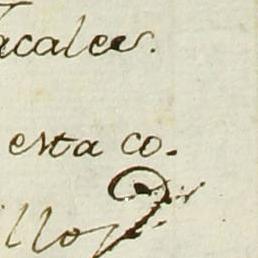 acalees.
esta co.
illo